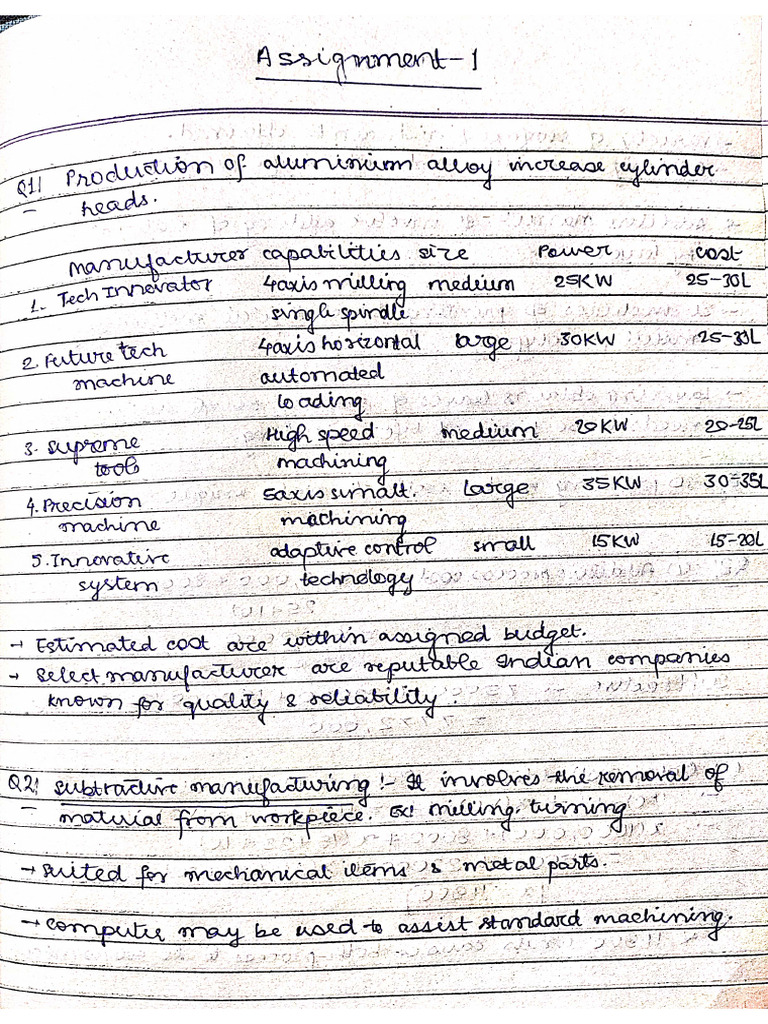 Assignment-1
Q1| Production of aluminium alloy increase cylinder
heads.
manufacturer capabilities size Power cost
1. Tech Innovator 4axis milling medium 25KW 25-30L
single spindle
2. Future tech 4axis horizontal large 30KW 25-30L
machine automated
loading
3. Supreme High speed medium 20KW 20-25L
tools machining
4. Precision 5axis simalt. Large 35KW 30-35L
machine machining
5. Innovative adaptive control small 15KW 15-20L
system technology
→ Estimated cost are within assigned budget.
→ Select manufacturer are reputable Indian companies
known for quality & reliability.
Q2| Subtractive manufacturing:- It involves the removal of
material from workpiece. Ex: milling, turning
→ suited for mechanical items & metal parts.
→ computer may be used to assist standard machining.